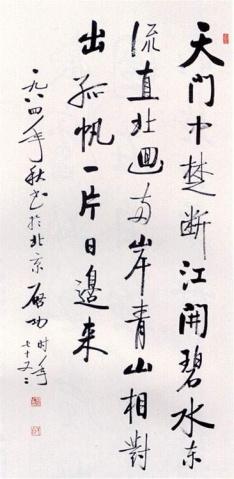 天门中楚断江開碧水东
流直北迴两岸青山相對
出孤帆一片日邊来
一九八四年秋书於北京 启功 时年
七十又二